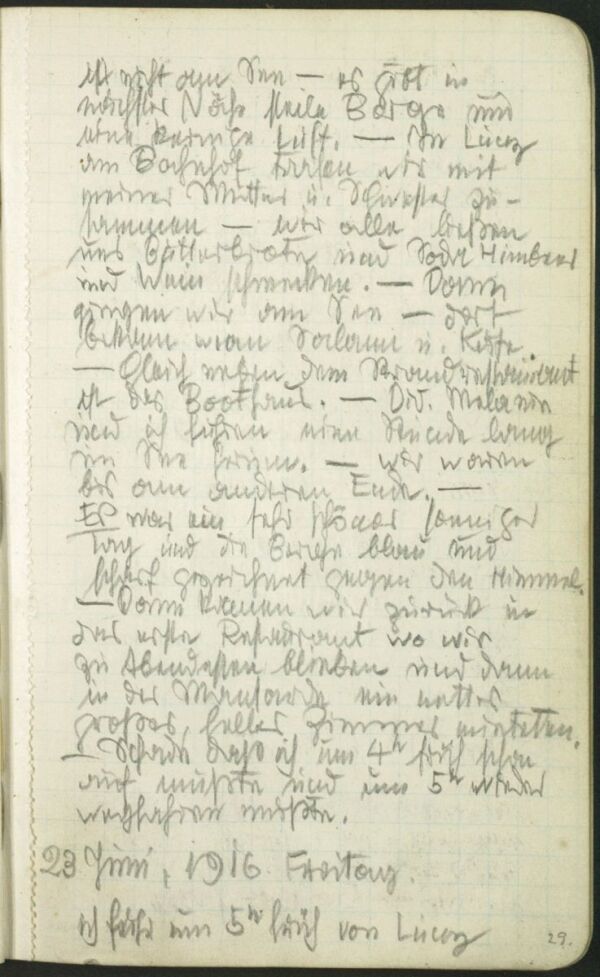 ist nicht am See — es gibt in
nächster Nähe steile Berge und
eine Luft. — In Lienz
am Bahnhof trafen wir mit
meiner Mutter u. Schwester zu-
sammen — wir alle ließen
uns Butterbrote und Soda Himbeer
und Wein schmecken. — Dann
gingen wir am See — dort
bekam man Salami u. Käse
— Gleich neben dem Strandrestaurant
ist das Boothaus. — Did. Melanie
und ich fuhren eine Stunde lang
im See herum. — wir waren
bis am anderen Ende. —
Es war ein sehr schöner sonniger
Tag und die Berge blau und
scharf gezeichnet gegen den Himmel.
— Dann kamen wir zurück in
das erste Restaurant wo wir
zu Abendessen blieben und dann
in der Mansarde ein nettes
großes, helles Zimmer mieteten.
— Schade daß ich um 4h früh schon
auf mußte und um 5h wieder
wegfahren mußte.
23 Juni, 1916. Freitag.
ich fuhr um 5h früh von Lienz
29.